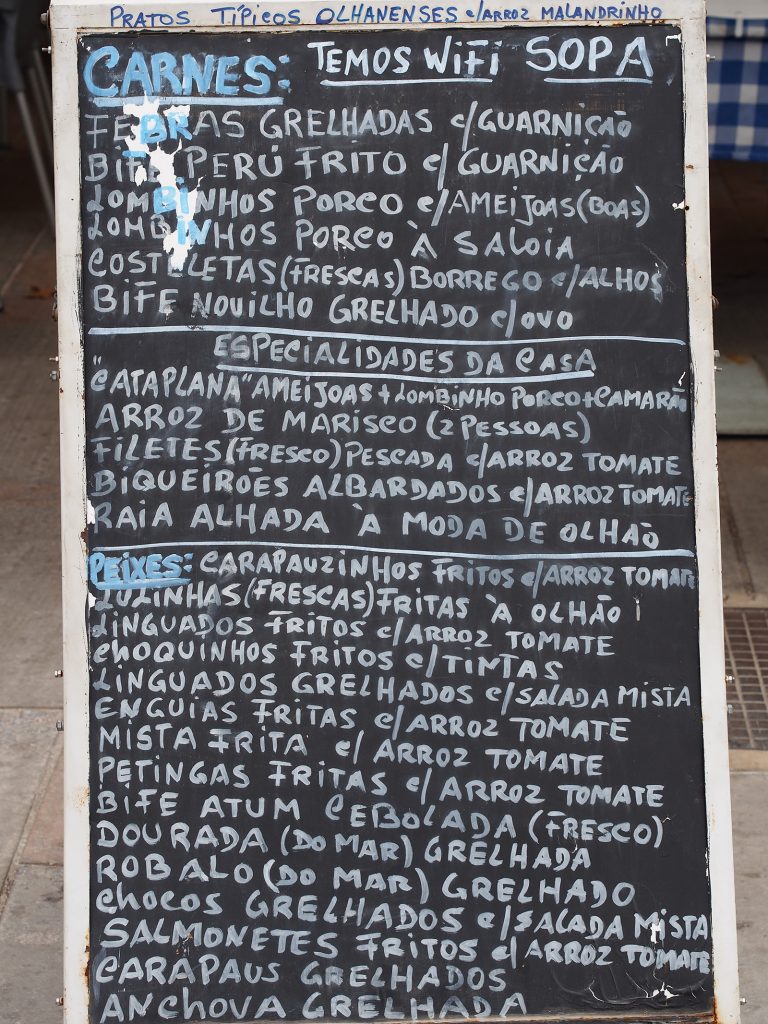 PRATOS TÍPICOS OLHANENSES c/ARROZ MALANDRINHO
CARNES: TEMOS WIFI SOPA
FEBRAS GRELHADAS c/GUARNIÇÃO
BIFE PERÚ FRITO c/ GUARNIÇÃO
LOMBINHOS PORCO c/AMEIJOAS(BOAS)
LOMBINHOS PORCO À SALOIA
COSTELETAS(FRESCAS)BORREGO c/ALHOS
BIFE NOVILHO GRELHADO c/OVO
ESPECIALIDADES DA CASA
"CATAPLANA"AMEIJOAS+LOMBINHO PORCO+CAMARÃO
ARROZ DE MARISCO(2 PESSOAS)
FILETES(FRESCO)PESCADA c/ARROZ TOMATE
BIQUEIRÕES ALBARDADOS c/ARROZ TOMATE
RAIA ALHADA À MODA DE OLHÃO
PEIXES: CARAPAUZINHOS FRITOS c/ARROZ TOMATE
LULINHAS(FRESCAS)FRITAS À OLHÃO
LINGUADOS FRITOS c/ARROZ TOMATE
CHOQUINHOS FRITOS c/TIMTAS
LINGUADOS GRELHADOS c/SALADA MISTA
ENGUIAS FRITAS c/ARROZ TOMATE
MISTA FRITA c/ ARROZ TOMATE
PETINGAS FRITAS c/ARROZ TOMATE
BIFE ATUM CEBOLADA (FRESCO)
DOURADA (DO MAR) GRELHADA
ROBALO (DO MAR) GRELHADO
CHOCOS GRELHADOS c/SALADA MISTA
SALMONETES FRITOS c/ARROZ TOMATE
CARAPAUS GRELHADOS
ANCHOVA GRELHADA